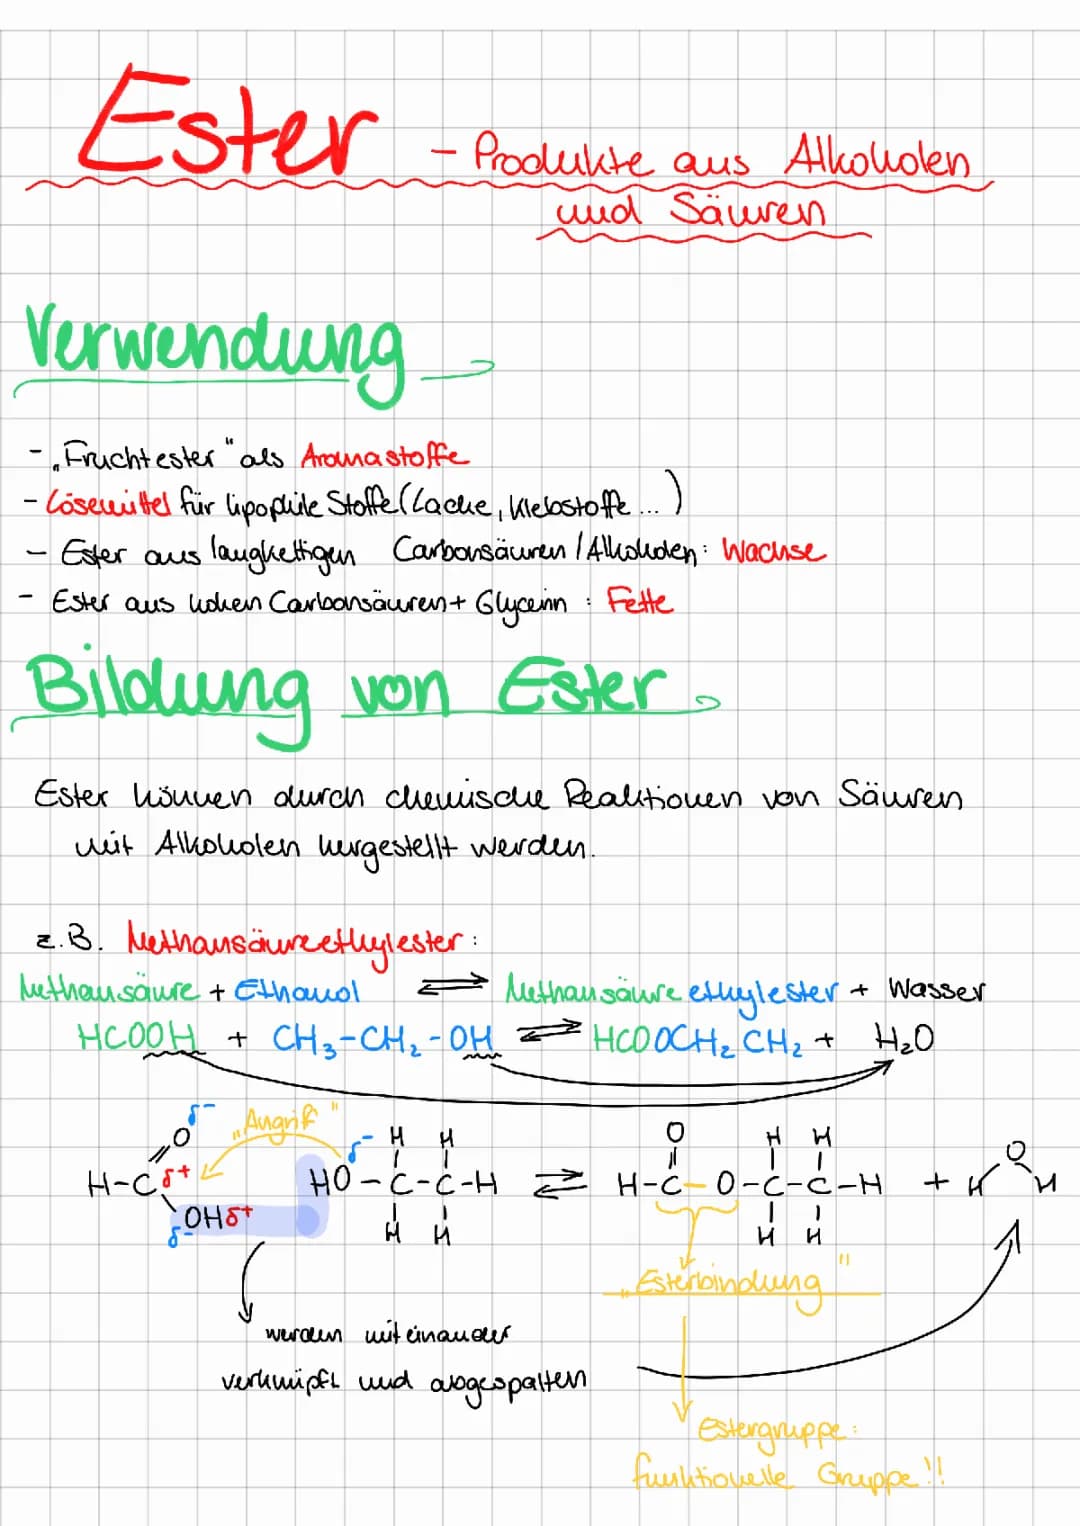 Ester - Produkte aus Alkoholen
und Säuren
Verwendung
- „Fruchtester" als Aromastoffe
- Lösemittel für lipophile Stoffe (Lacke, Klebstoffe ... )
- Ester aus langkettigen Carbonsäuren / Alkoholen: Wachse
- Ester aus hohen Carbonsäuren + Glycerin : Fette
Bildung von Ester
Ester können durch chemische Reaktionen von Säuren
mit Alkoholen hergestellt werden.
z.B. Methansäureethylester:
Methansäure + Ethanol ⇌ Methansäureethylester + Wasser
HCOOH + CH₃-CH₂-OH ⇌ HCOOCH₂CH₂ + H₂O
δ- „Angrif" δ- H H O H H O
H-C δ+ HO-C-C-H ⇌ H-C-O-C-C-H + H H
δ- OH δ+ H H H H
„Esterbindung"
werden miteinander
verknüpft und abgespalten
Estergruppe:
funktionelle Gruppe!!